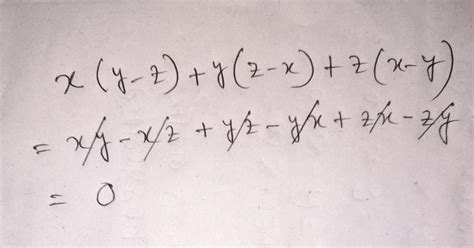 x (y-z) + y(z-x) + z(x-y)
= xy - xz + yz - yx + zx - zy
= 0